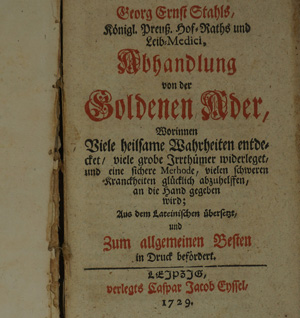 Georg Ernst Stahls,
Königl. Preuß. Hof-Raths und
Leib-Medici,
Abhandlung
von der
Goldenen Ader,
Worinnen
Viele heilsame Wahrheiten entde-
cket/ viele grobe Irrthümer widerleget,
und eine sichere Methode, vielen schweren
Kranckheiten glücklich abzuhelffen,
an die Hand gegeben
wird;
Aus dem Lateinischen übersetzt,
und
Zum allgemeinen Besten
in Druck befördert.
LEIPZIG,
verlegts Caspar Jacob Eyssel,
1729.